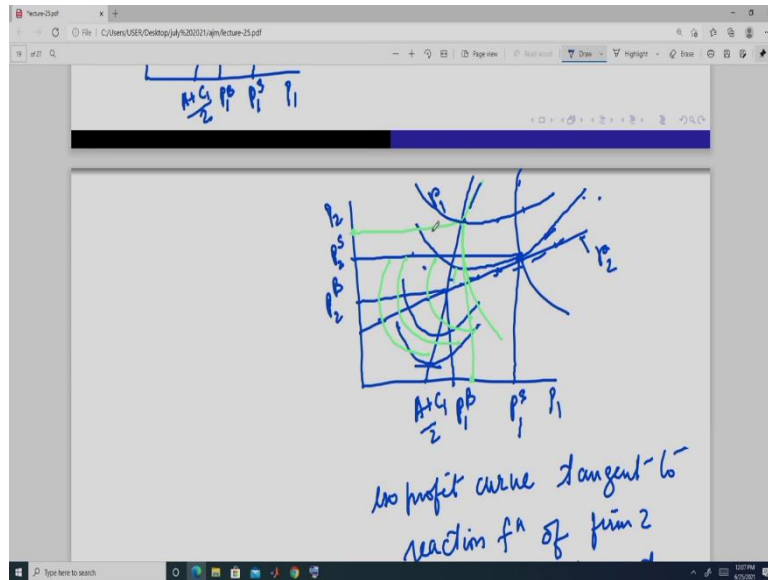 lecture-25.pdf
File | C:/Users/USER/Desktop/july%202021/ajm/lecture-25.pdf
19 of 27
Page view
Read aloud
Draw
Highlight
Erase
A+C1/2 P1^B P1^S P1
P2
P2^S
P2^B
r1
r2
A+C1/2 P1^B P1^S P1
iso profit curve tangent to
reaction f^n of firm 2
Type here to search
12:07 PM
6/25/2021